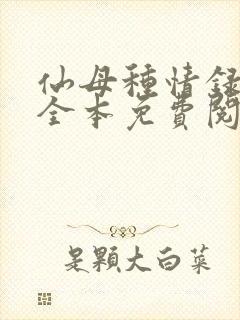 仙母種情録
全本免費閱
是顆大白菜